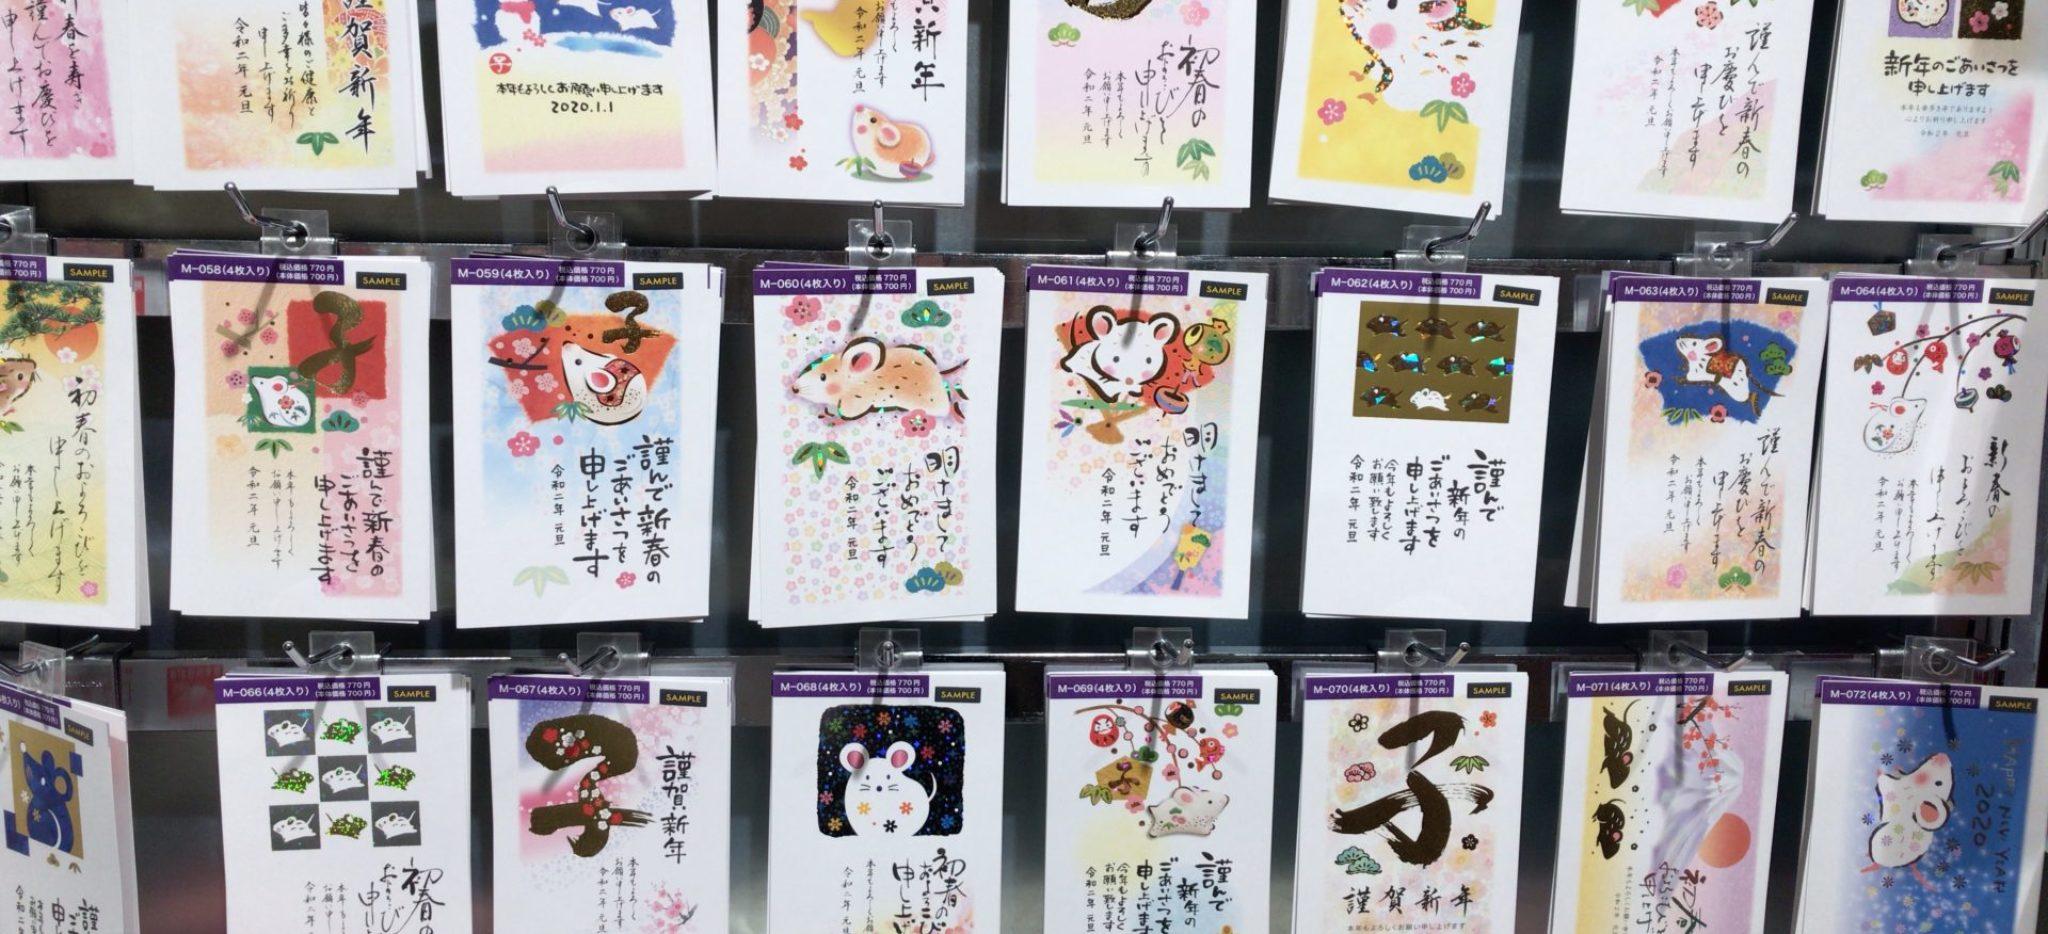 新春を寿ぎ
謹んでお慶びを
申し上げます
謹賀新年
皆々様のご健康と
ご多幸をお祈り
申し上げます
令和二年 元旦
子
本年もよろしくお願い申し上げます
2020.1.1
新年
お願い申し上げます
令和二年 元旦
初春の
およろこび
申し上げます
本年もよろしく
お願い申し上げます
令和二年 元旦
謹んで新春の
お慶びを
申し上げます
本年もよろしく
お願い申し上げます
令和二年 元旦
新年のごあいさつを
申し上げます
本年も幸多き年でありますよう
心よりお祈り申し上げます
令和2年 元旦
税込価格 770円
(本体価格 700円)
SAMPLE
初春のおよろこびを
申し上げます
本年もよろしく
お願い申し上げます
令和二年 元旦
M-058(4枚入り)
税込価格 770円
(本体価格 700円)
SAMPLE
子
謹んで新春の
ごあいさつを
申し上げます
本年もよろしく
お願い申し上げます
令和二年 元旦
M-059(4枚入り)
税込価格 770円
(本体価格 700円)
SAMPLE
子
謹んで新春の
ごあいさつを
申し上げます
令和二年 元旦
M-060(4枚入り)
税込価格 770円
(本体価格 700円)
SAMPLE
明けまして
おめでとう
ございます
令和二年 元旦
M-061(4枚入り)
税込価格 770円
(本体価格 700円)
SAMPLE
明けまして
おめでとう
ございます
令和二年 元旦
M-062(4枚入り)
税込価格 770円
(本体価格 700円)
SAMPLE
謹んで
新年の
ごあいさつを
申し上げます
今年もよろしく
お願い致します
令和二年 元旦
M-063(4枚入り)
税込価格 770円
(本体価格 700円)
SAMPLE
謹んで新春の
お慶びを
申し上げます
本年もよろしく
お願い申し上げます
令和二年 元旦
M-064(4枚入り)
税込価格 770円
(本体価格 700円)
SAMPLE
新春の
およろこびを
申し上げます
本年もよろしく
お願い申し上げます
令和二年 元旦
税込価格 770円
(本体価格 700円)
SAMPLE
謹
申し
令和二年
M-066(4枚入り)
税込価格 770円
(本体価格 700円)
SAMPLE
初春の
およろこび
申し
本年も
お願い
令和二年
M-067(4枚入り)
税込価格 770円
(本体価格 700円)
SAMPLE
子
謹賀新年
本年もよろしく
お願い申し上げます
令和二年 元旦
M-068(4枚入り)
税込価格 770円
(本体価格 700円)
SAMPLE
初春の
およろこび
申し上げ
本年もよろしく
お願い申し上
令和二年 元
M-069(4枚入り)
税込価格 770円
(本体価格 700円)
SAMPLE
謹んで
新年の
ごあいさつを
申し上げます
今年もよろしく
お願い致します
令和二年 元旦
M-070(4枚入り)
税込価格 770円
(本体価格 700円)
SAMPLE
子
謹賀新年
本年もよろしくお願い申し上げます
M-071(4枚入り)
税込価格 770円
(本体価格 700円)
SAMPLE
初春
およろこび
申し上げ
M-072(4枚入り)
税込価格 770円
(本体価格 700円)
SAMPLE
HAPPY NEW YEAR
2020